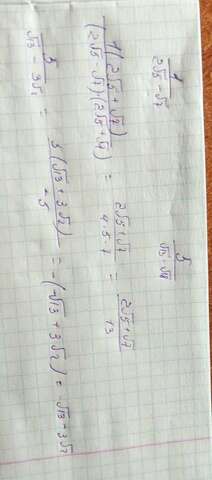 1/(2√5 - √7)
5/(√13 - √18)
1(2√5 + √7)/((2√5 - √7)(2√5 + √7)) = (2√5 + √7)/(4·5-7) = (2√5 + √7)/13
5/(√13 - 3√2) = 5(√13 + 3√2)/-5 = -(√13 + 3√2) = -√13 - 3√2